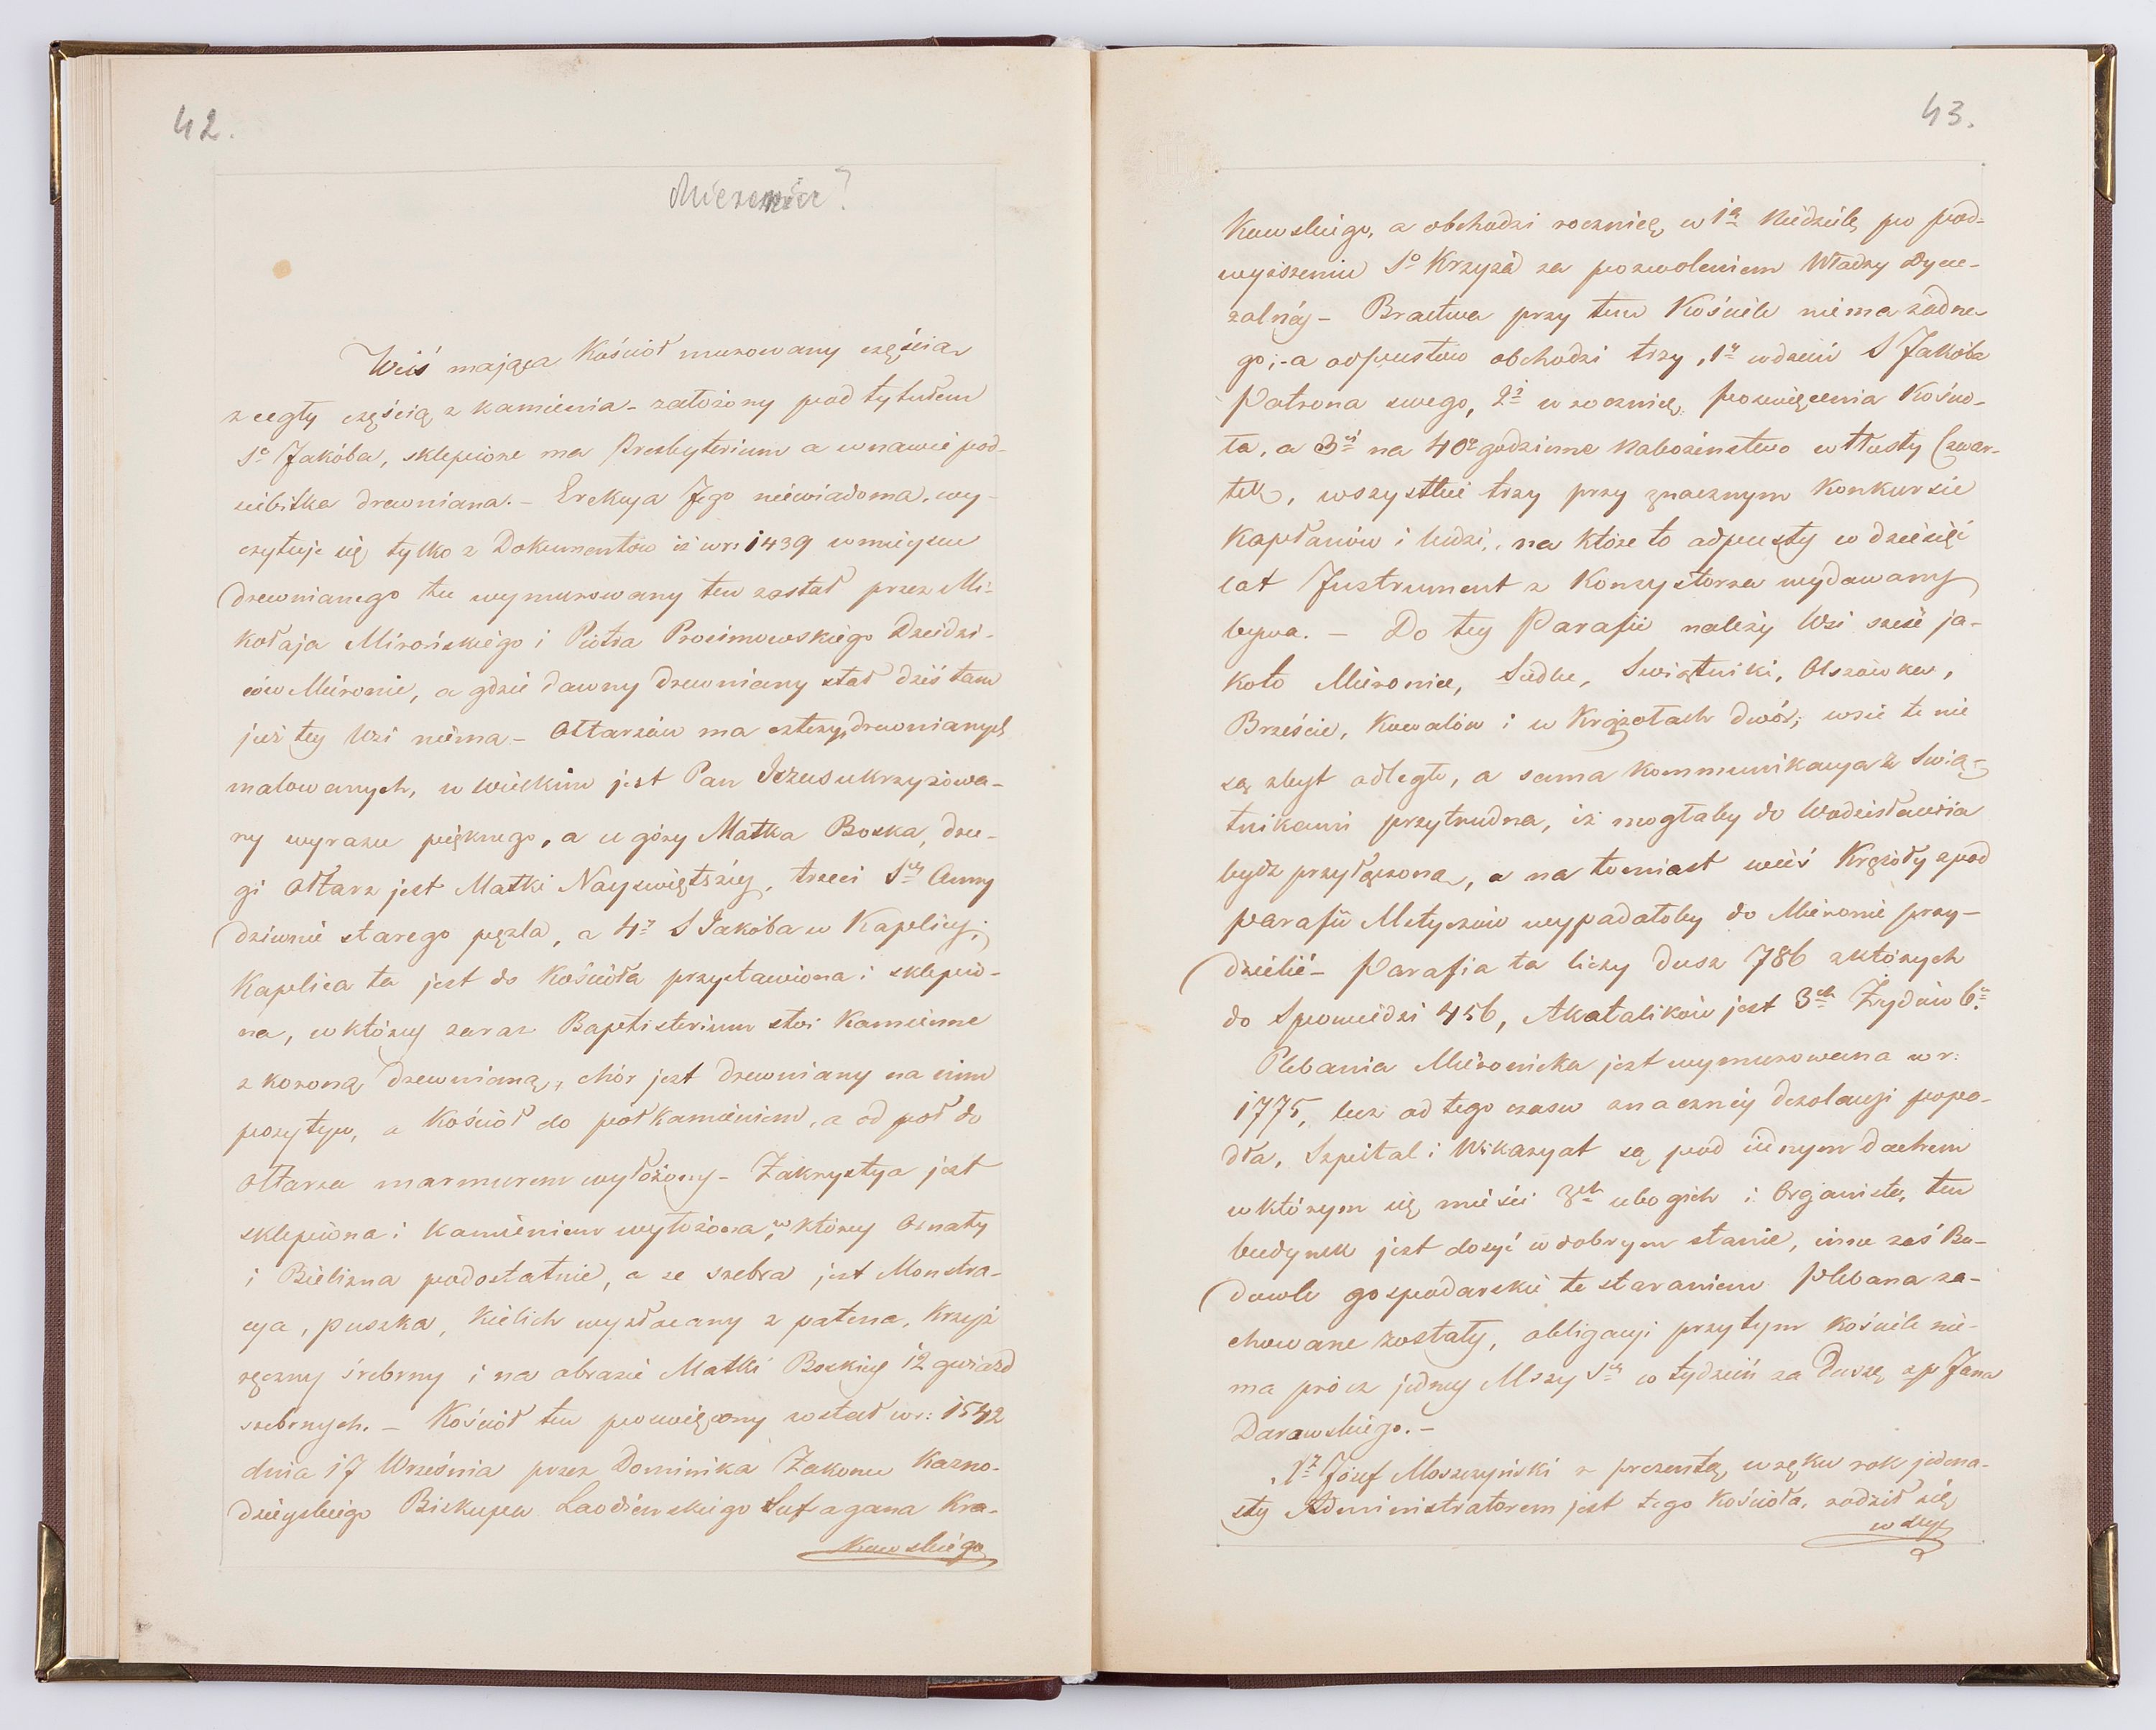 42.
Mieronice?
Wieś mająca Kościoł murowany częścia
z cegły częścią z kamienia - założony pod tytułem
So Jakóba, sklepione ma Presbyterium a w nawie pod-
siebitka drewniana. - Erekcya Jego niewiadoma, wy-
czytuje się tylko z Dokumentów iż w r: 1439 w mieyscu
drewnianego tu wymurowany ten został przez Mi-
kołaja Mirońskiego i Piotra Procimowskiego Dziedzi-
ców Mieronic, a gdzie dawny drewniany stał dziś tam
już tey Wsi niéma - Ołtarzów ma cztery, drewnianych
malowanych, w wielkim jest Pan Jezus ukrzyżowa-
ny wyrazu pięknego, a u góry Matka Boska, dru-
gi Ołtarz jest Matki Nayświętszéy, trzeci Stey Anny
dziwnie starego pęzla, a 4y S Jakóba w Kaplicy;
Kaplica ta jest do Kościoła przystawiona i sklepio-
na, w któréy zaraz Baptisterium stoi Kamienne
z koroną drewnianą, chór jest drewniany na nim
pozytyw, a Kościoł do poł kamieniem, a od poł do
Ołtarza marmurem wyłożony - Zakrystya jest
sklepiona i kamieniem wyłożona, w któréy Ornaty
i Bielizna podostatnie, a ze srebra jest Monstra-
cya, puszka, Kielich wyzłacany z patena, Krzyż
ręczny śrebrny i na obrazie Matki Boskiey 12 gwiazd
srebrnych. - Kościoł ten poswięcony został w r: 1542
dnia 17 Września przez Dominika Zakonu Kazno-
dzieyskiego Biskupa Laodiceńskiego Sufragana Kra-
kowskiego
43.
Kowskiego, a obchodzi rocznicę w 1ą Niedzielę po pod-
wyższeniu So Krzyża za pozwoleniem Władzy Dyece-
zalnéj - Bractwa przy tem Kościele niema żadne
go; - a odpustów obchodzi trzy, 1y w dzeiń S Jakóba
Patrona swego, 2i w rocznicę poswięcenia Kościo-
ła, a 3ci na 40o godzinne nabożeństwo w tłusty Czwar-
tek, wszystkie trzy przy znacznym Konkursie
Kapłanów i ludzi, na które to odpusty w dziesięć
lat Instrument z Konsystorza wydawany
bywa. - Do tey Parafii należy Wsi sześć ja-
koto Mieronice, Sudke, Swiątniki, Olszówka,
Brzeście, Kowalów i w Krążołach dwór; wsie te nie
są zbyt odległe, a sama kommunikacya z Swią-
tnikami przytrudna, iż mogłaby do Wodzisławia
bydz przyłączona, a na tomiast wieś Krężoły z pod
parafii Mstyczów wypadałoby do Mieronic przy-
dzielić - Parafia ta liczy dusz 786 z których
do Spowiedzi 456, Akatolików jest 3ch Żydów 6u.
Plebania Mieronicka jest wymurowana w r:
1775, lecz od tego czasu znacznéy dezolacyi popa-
dła, Szpital i Wikaryat są pod iednym dachem
w którym się mieści 3ch ubogich i Organista, ten
budynek jest dosyć w dobrym stanie, inne zaś Bu-
dowle gospodarskie te staraniem Plebana za-
chowane zostały, obligacyi przy tym Kościele nie-
ma prócz jedney Mszy Stey w tydzień za Duszę sp Jana
Darawskiego. -
1y Józef Moszczyński z prezentą w ręku rok jedena-
sty Administratorem jest tego Kościoła, rodził się
w sey